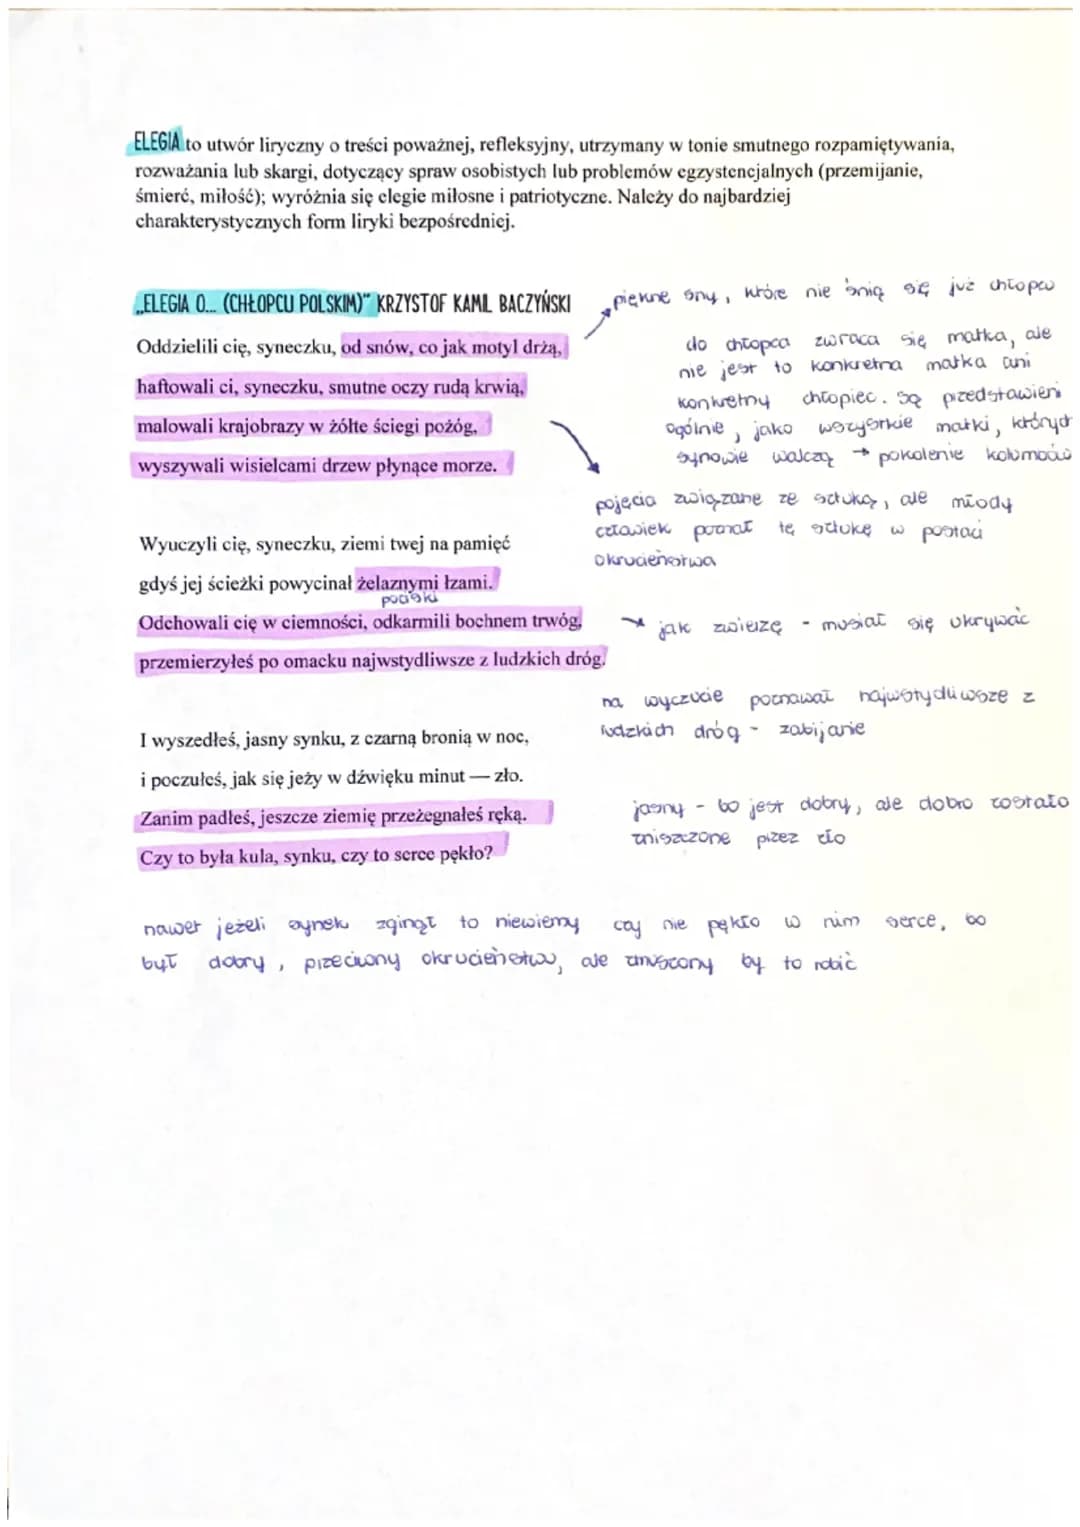 ELEGIA to utwór liryczny o treści poważnej, refleksyjny, utrzymany w tonie smutnego rozpamiętywania,
rozważania lub skargi, dotyczący spraw osobistych lub problemów egzystencjalnych (przemijanie,
śmierć, miłość); wyróżnia się elegie miłosne i patriotyczne. Należy do najbardziej
charakterystycznych form liryki bezpośredniej.
„ELEGIA O... (CHŁOPCU POLSKIM)" KRZYSTOF KAMIL BACZYŃSKI
piękne sny, które nie śnią się już chłopcu
Oddzielili cię, syneczku, od snów, co jak motyl drżą,
haftowali ci, syneczku, smutne oczy rudą krwią,
malowali krajobrazy w żółte ściegi pożóg,
wyszywali wisielcami drzew płynące morze.
do chłopca zwraca się matka, ale
nie jest to konkretna matka ani
konkretny chłopiec. są przedstawieni
ogólnie, jako wszystkie matki, których
synowie walczą → pokolenie kolumbów
pojęcia związane ze sztuką, ale młody
człowiek poznał tę sztukę w postaci
okrucieństwa
Wyuczyli cię, syneczku, ziemi twej na pamięć
gdyś jej ścieżki powycinał żelaznymi łzami.
pociski
Odchowali cię w ciemności, odkarmili bochnem trwóg,
przemierzyłeś po omacku najwstydliwsze z ludzkich dróg.
→ jak zwierzę - musiał się ukrywać
na wyczucie poznawał najwstydliwsze z
ludzkich dróg - zabijanie
I wyszedłeś, jasny synku, z czarną bronią w noc,
i poczułeś, jak się jeży w dźwięku minut — zło.
Zanim padłeś, jeszcze ziemię przeżegnałeś ręką.
Czy to była kula, synku, czy to serce pękło?
jasny - bo jest dobry, ale dobro zostało
zniszczone przez zło
nawet jeżeli synek zginął to niewiemy czy nie pękło w nim serce, bo
był dobry, przeciwny okrucieństwu, ale zmuszony by to robić